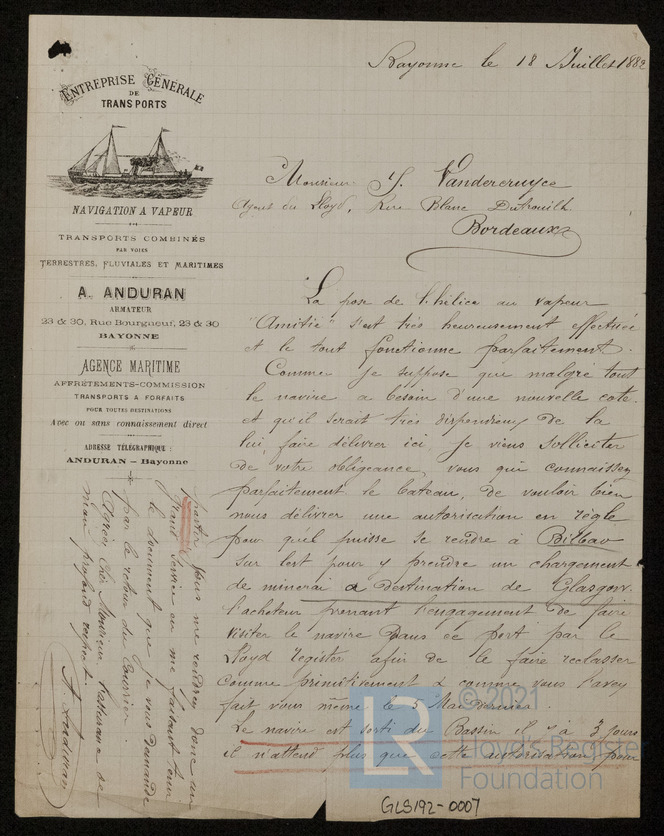 Bayonne le 18 Juillet 1882
ENTREPRISE GÉNÉRALE
DE
TRANSPORTS
NAVIGATION A VAPEUR
TRANSPORTS COMBINÉS
PAR VOIES
TERRESTRES, FLUVIALES ET MARITIMES
A. ANDURAN
ARMATEUR
23 & 30, Rue Bourgneuf, 23 & 30
BAYONNE
AGENCE MARITIME
AFFRÉTEMENTS-COMMISSION
TRANSPORTS A FORFAITS
POUR TOUTES DESTINATIONS
Avec ou sans connaissement direct
ADRESSE TÉLÉGRAPHIQUE :
ANDURAN – Bayonne
Monsieur J. Vandercruyce
Agent du Lloyd, Rue Blanc Dutrouilh
Bordeaux
La pose de l'hélice au vapeur
"Amitié" s'est très heureusement effectuée
et le tout fonctionne parfaitement.
Comme je suppose que malgré tout
le navire a besoin d'une nouvelle cote
et qu'il serait très dispendieux de la
lui faire délivrer ici, je viens solliciter
de votre obligeance, vous qui connaissez
parfaitement le bateau, de vouloir bien
nous délivrer une autorisation en règle
pour qu'il puisse se rendre à Bilbao
sur lest pour y prendre un chargement
de minerai à destination de Glasgow.
l'acheteur prenant l'engagement de faire
visiter le navire dans ce port par le
Lloyd Register afin de le faire reclasser
comme primitivement & comme vous l'avez
fait vous même le 5 Mai dernier.
Le navire est sorti du Bassin il y a 3 jours
il n'attend plus que cette autorisation pour
partir vous me rendrez donc un
grand service en me faisant tenir
le document que je vous demande
par le retour du Courrier
Agréez Cher Monsieur l'assurance de
mon profond respect
A Anduran
© 2021
LR
Lloyd's Register
Foundation
GLS192-0007